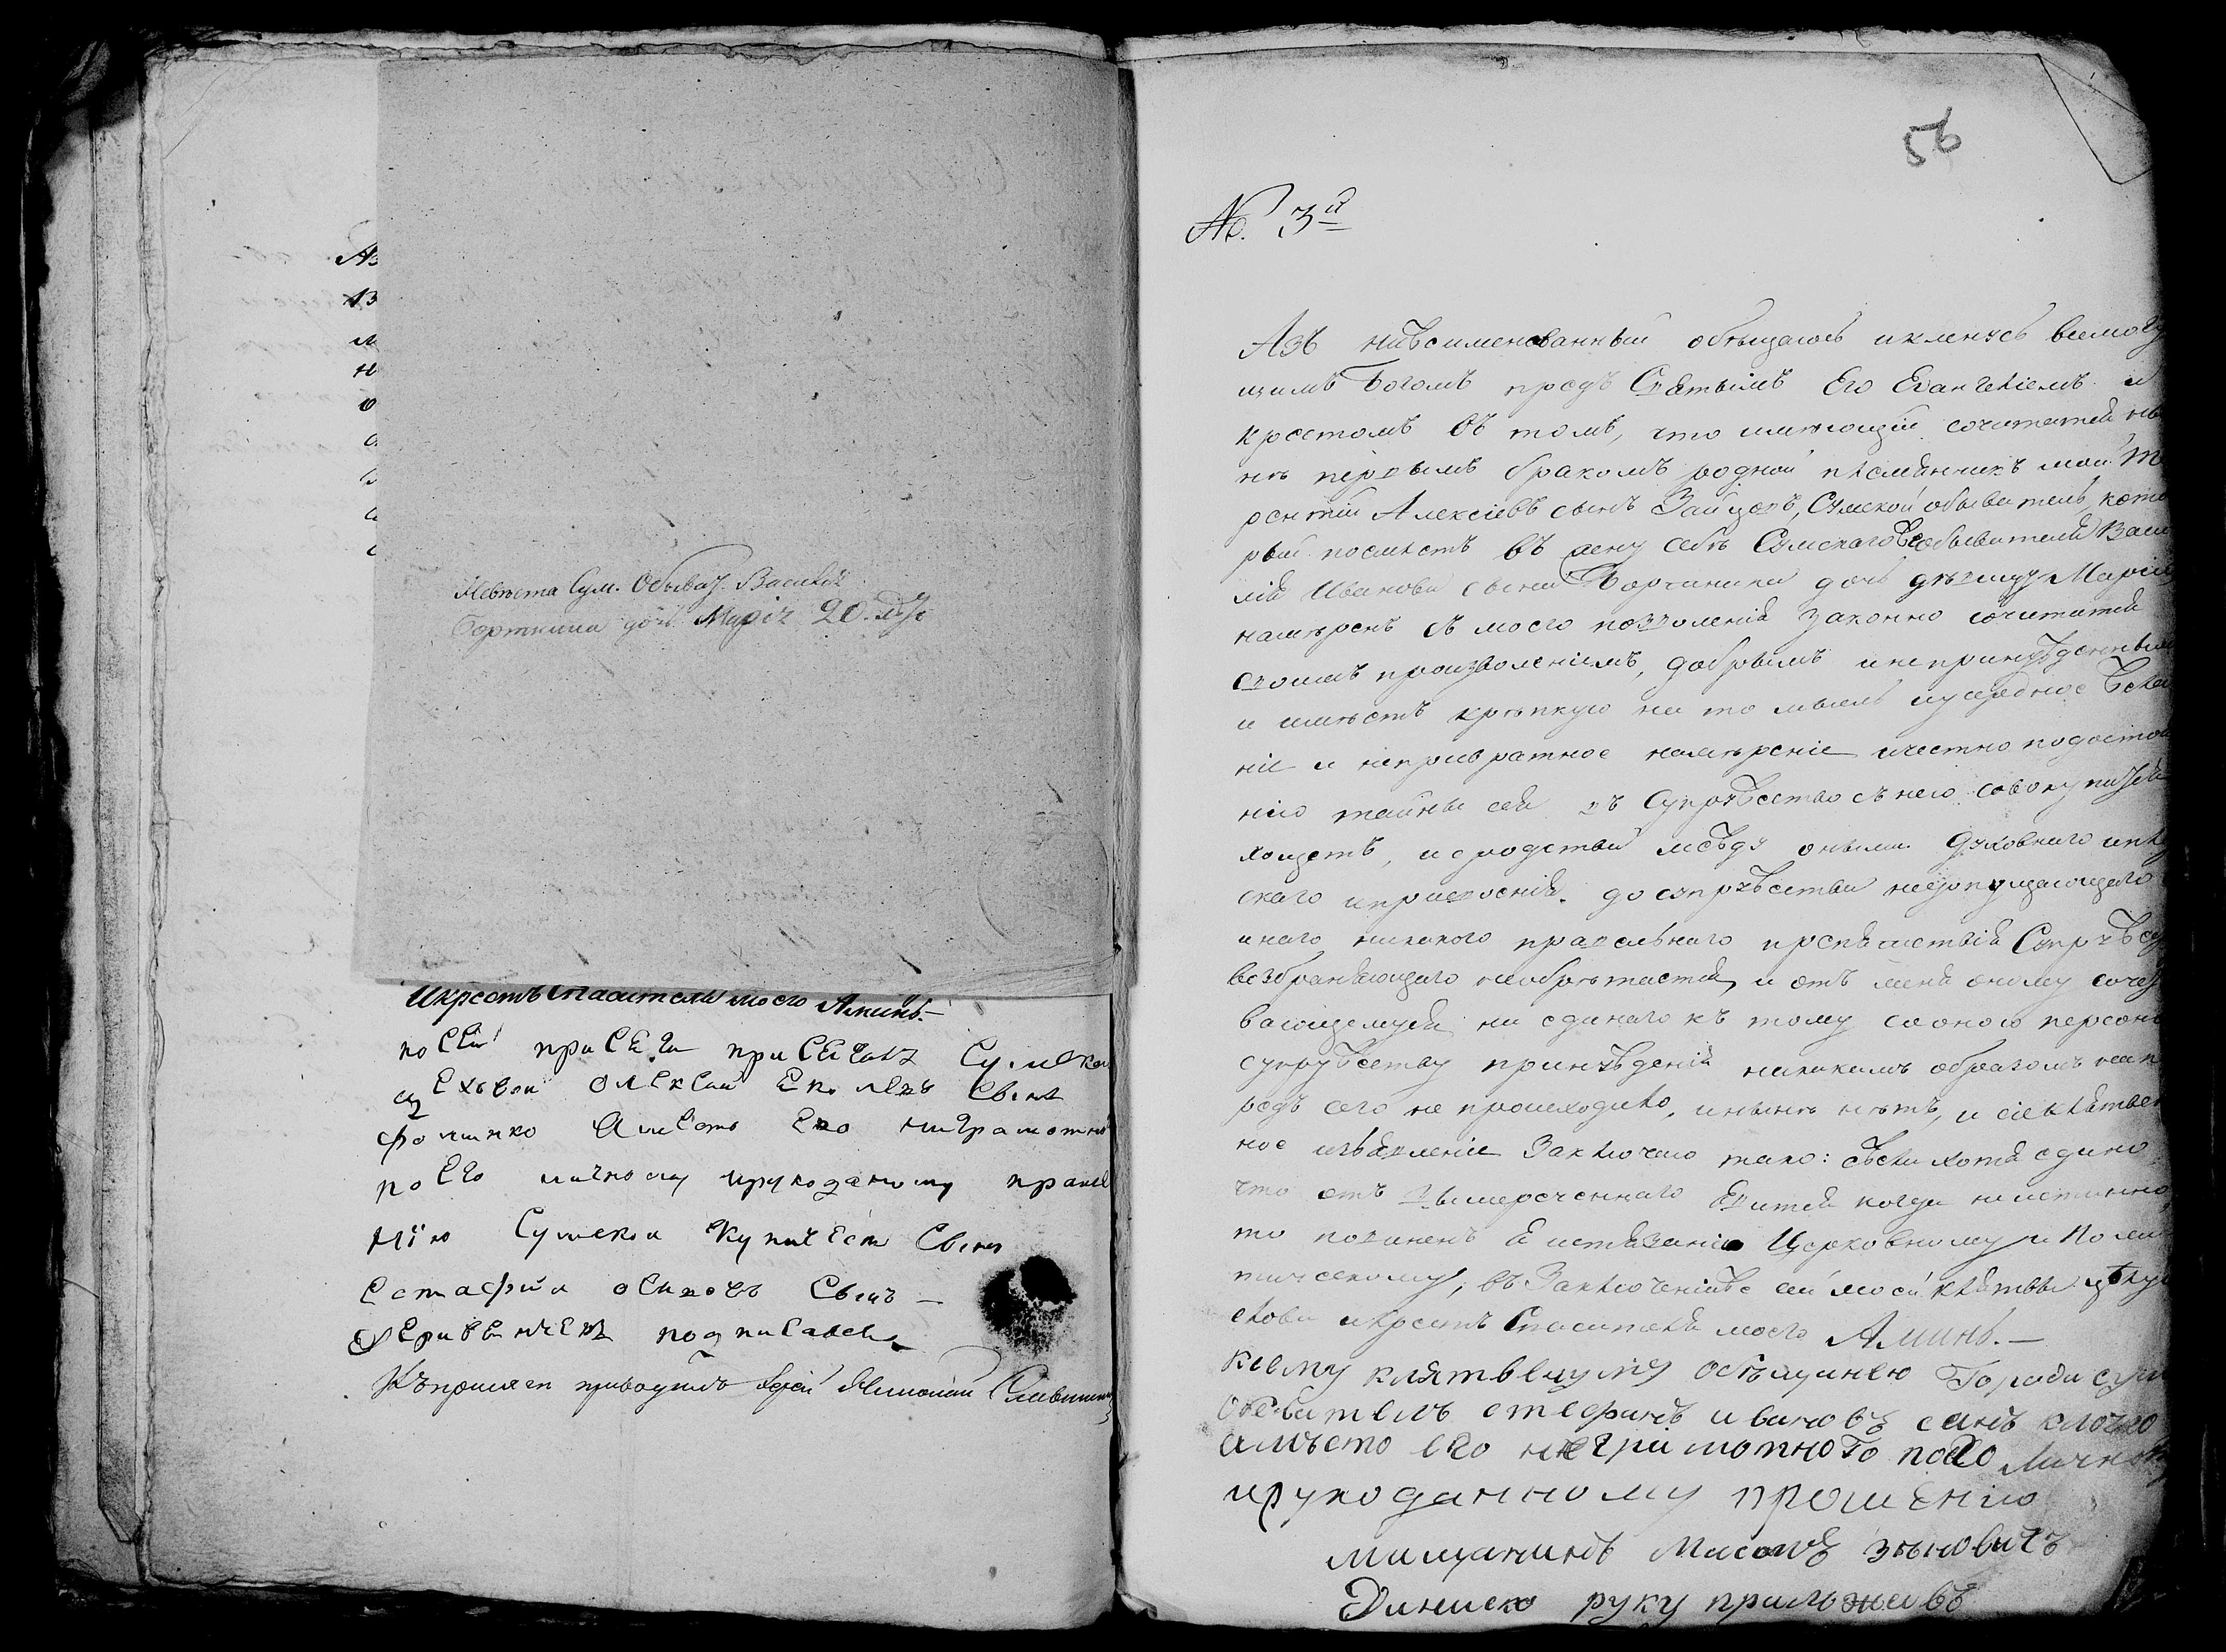 Аз
В
м
н
о
Невѣста Сум. Обыват. Василія
Борткина дочь Марія 20. лѣт
Икрестъ Спасителя моего Аминь.
посей присяги присягалъ Сумской
цеховой Олексій сынъ
фоминко аместо его ниграмотно
поего личному ирукоданому проше
нїю Сумской купичест сынъ
естафий осиповъ сынъ
подписался
Къприсяги приводилъ Іерей
56
№. 3й
Азъ нижеименованный обѣщаюсь иклянусь всемогу
щимъ Богомъ предъ Святымъ Его Евангеліемъ и
крестомъ въ томъ, что имѣющій сочитатся ны
нѣ первымъ бракомъ родной племянникъ мой Те
рентій Алексіевъ сынъ Зайцовъ, Сумской обыватель, кото
рый поемлетъ въ жену себѣ Сумскаго обывателя Васи
лія Иванова сына Борткина дочь дѣвицу Марію
намѣренъ съ моего позволенія законно сочитатся
своимъ произволеніемъ, добрымъ инепринужденнымъ
и имѣетъ крѣпкую на то мысль иусердное жела
ніе и непревратное намѣреніе ичестно подостоя
нію тайны сея въ Супружество съ нею совокупится
хощетъ, исродства между оными духовнаго ипло
скаго иприсвоенія до супружества недопущающаго
инаго никакого правильнаго препятствія Супружеству
возбраняющаго необрѣтается, и отъ меня оному сочета
вающемуся ни единаго къ тому съ оною персоною
супружеству принужденія никакимъ образомъ нап
редъ сего не происходило, инынѣ нѣтъ, и сіе клятвен
ное изъявленіе Заключаю тако: ежели хотя едино
что отъ вышереченнаго явится когда неистинно,
то повиненъ я истязанію Церковному и Поли
тическому, въ Заключеніе сей моей клятвы цѣлую
слова икрестъ Спасителя моего Аминь.
ксему клятвенуму обещанею Города сум
обевателъ стефанъ ивановъ синъ
амѣсто его неграмотного поего личном
ирукоданному прошенію
мищанинъ
руку приложивъ